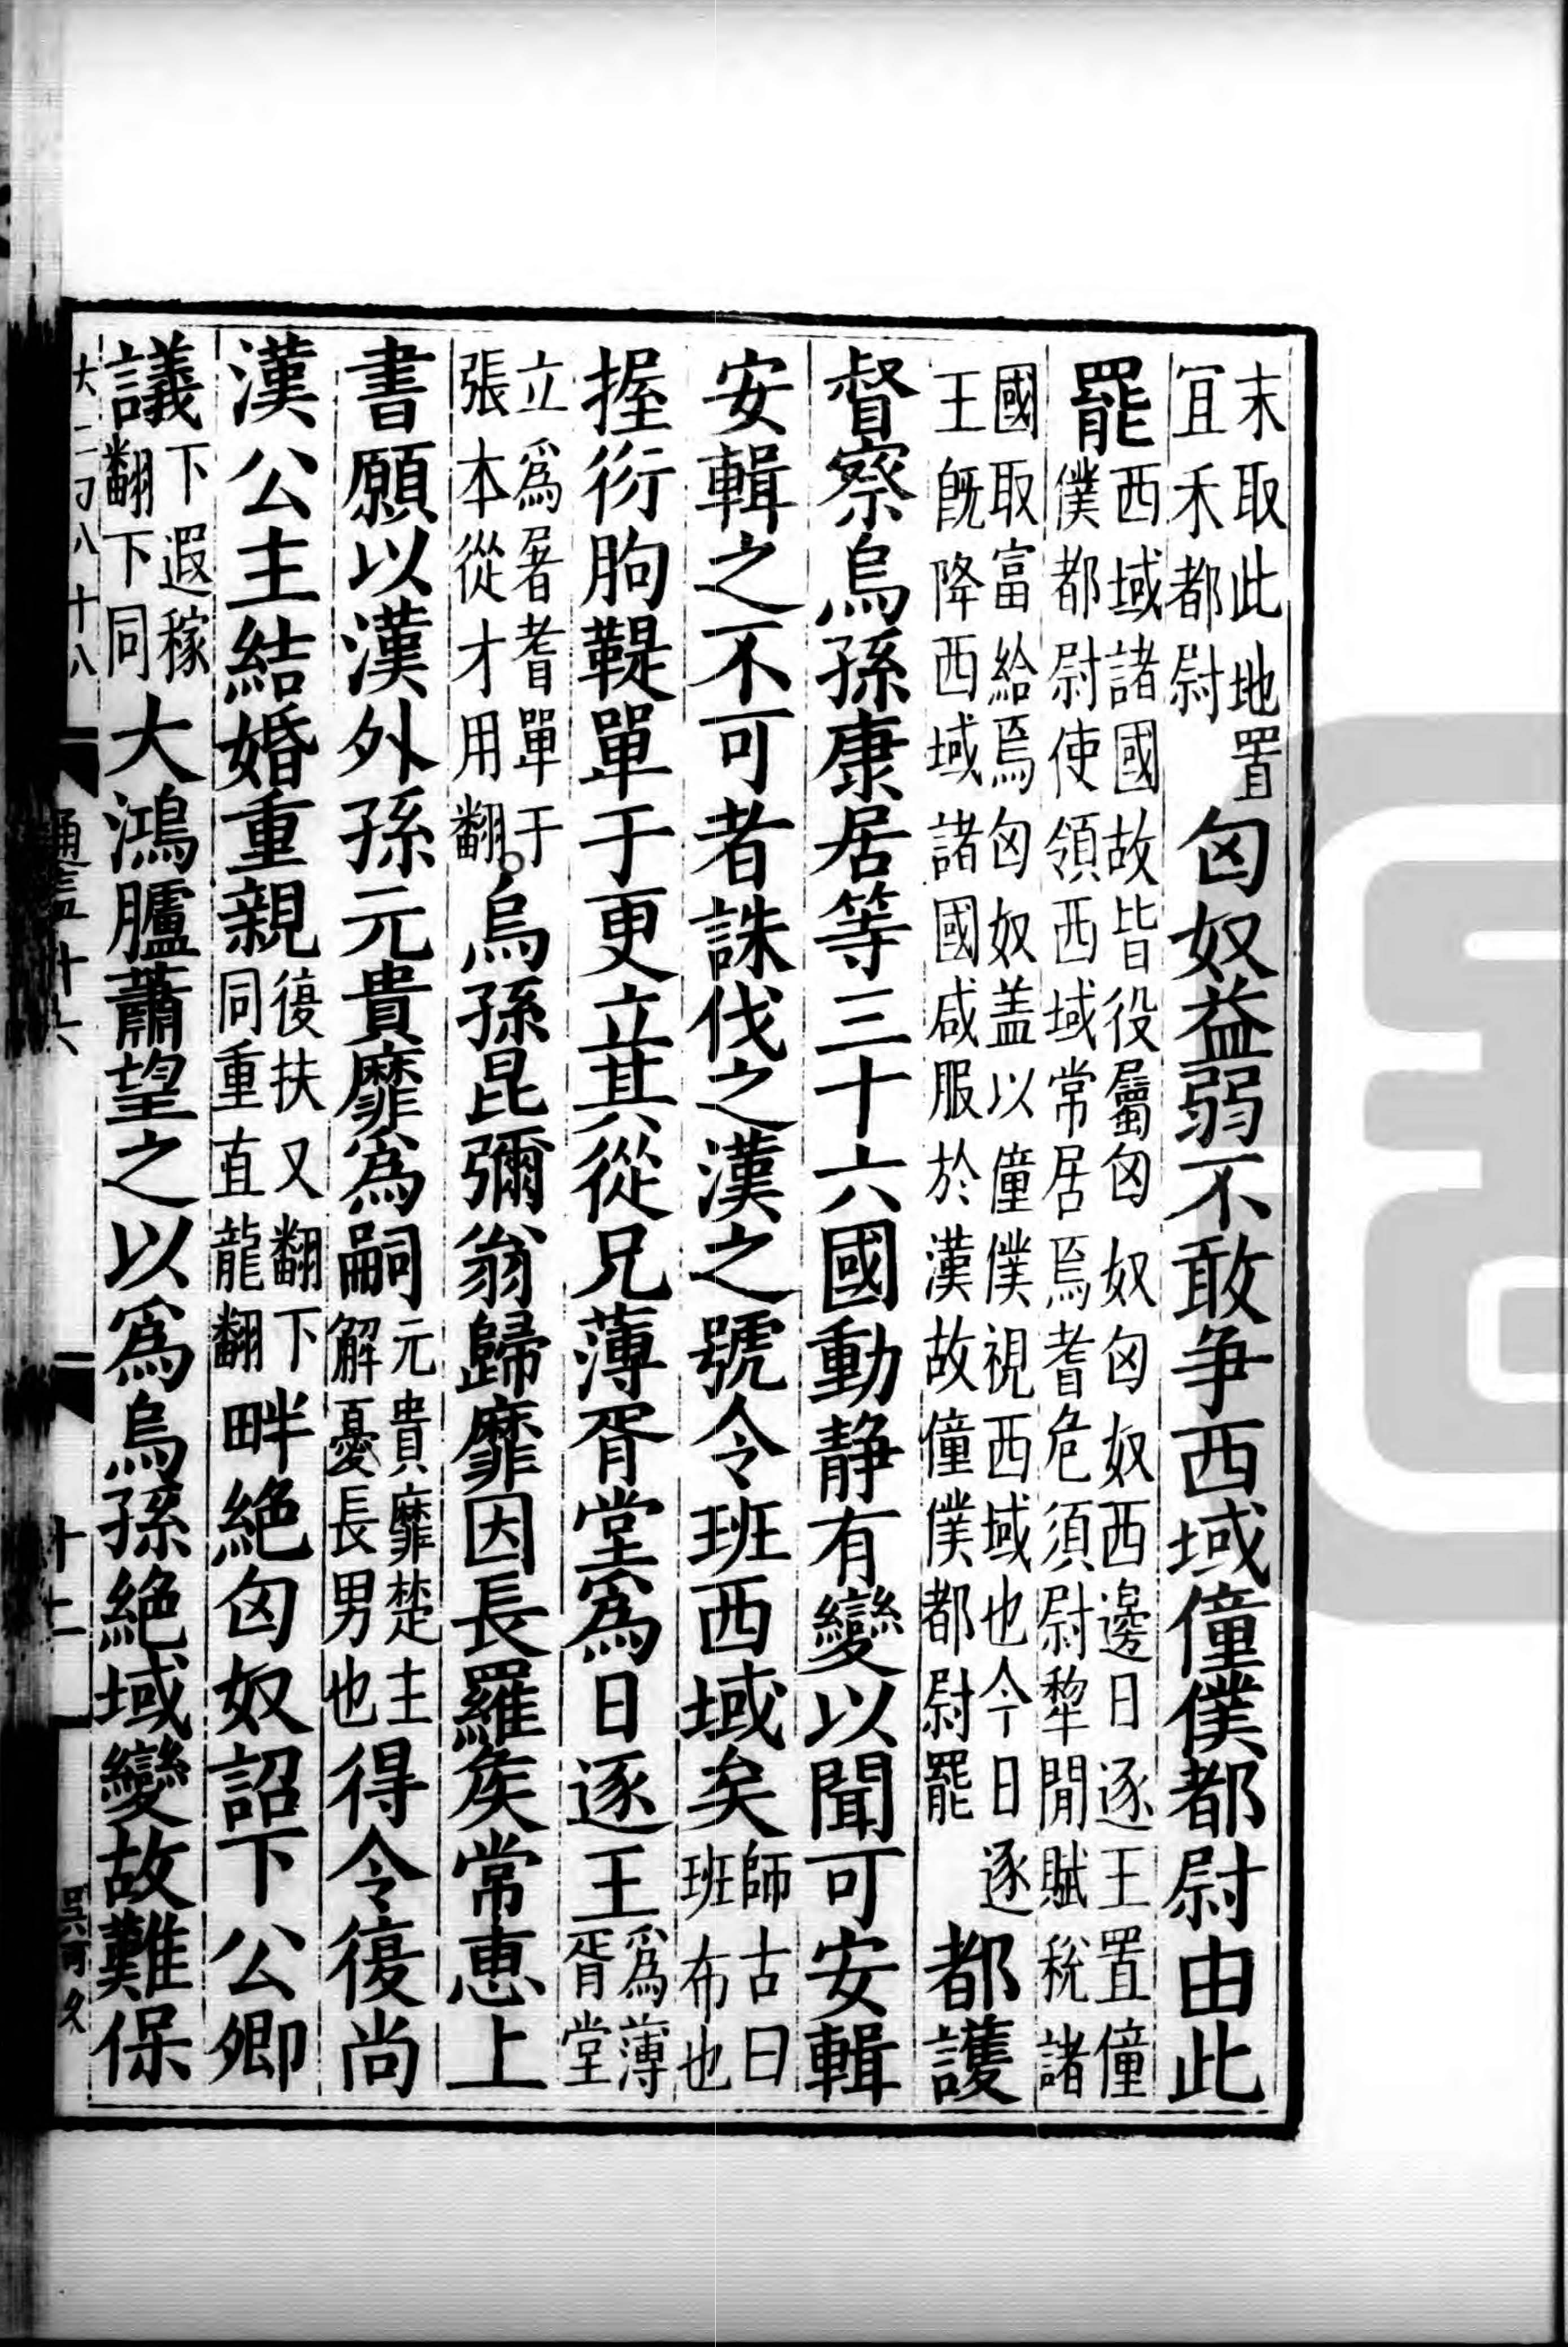 末取此地置
宜禾都尉
匈奴益弱不敢争西域僮僕都尉由此
罷
西域諸國故皆役屬匈奴匈奴西邊日逐王置僮
僕都尉使領西域常居焉耆危須尉犂閒賦稅諸
國取富給焉匈奴盖以僮僕視西域也今日逐
王旣降西域諸國咸服於漢故僮僕都尉罷
都護
督察烏孫康居等三十六國動静有變以聞可安輯
安輯之不可者誅伐之漢之號令班西域矣
師古曰
班布也
握衍朐鞮單于更立其從兄薄胥堂爲日逐王
爲薄
胥堂
立爲屠耆單于
張本從才用翻
。烏孫昆彌翁歸靡因長羅矦常惠上
書願以漢外孫元貴靡爲嗣
元貴靡楚主
解憂長男也
得令復尚
漢公主結婚重親
復扶又翻下
同重直龍翻
畔絶匈奴詔下公卿
議
下遐稼
翻下同
大鴻臚蕭望之以爲烏孫絶域變故難保
十二